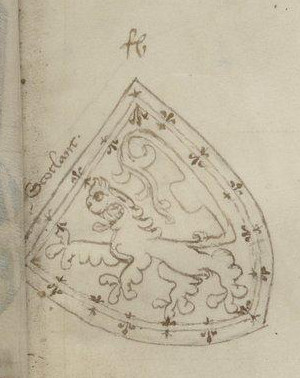 fl.
Scotlant.